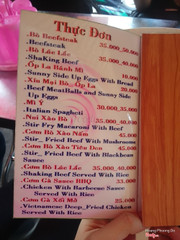 Thực Đơn
.Bò Beefsteak 35.000,50.000
.Beefsteak
.Bò Lúc Lắc 35.000,50.000
.Shaking Beef
.Ốp La Bánh Mì 18.000
.Sunny Side Up Eggs With Bread
.Xíu Mại Bò, Ốp La 20.000
.Beef Meatballs and Sunny Side
Up Eggs
.Mì Ý 30.000,35.000
.Italian Spaghetti
.Nui Xào Bò 35.000,40.000
.Stir Fry Macaroni With Beef
.Cơm Bò Xào Nấm 45.000
.Stir_ Fried Beef With Mushrooms
.Cơm Bò Xào Tiêu Đen 45.000
.Stir_ Fried Beef With Blackbean
Sauce
.Cơm Bò Lúc Lắc 35.000,40.000
.Shaking Beef Served With Rice
.Cơm Gà Sauce BBQ 33.000
.Chicken With Barbecue Sauce
Served With Rice
.Cơm Gà Xối Mỡ 35.000
.Vietnamese Deep_Fried Chicken
Served With Rice